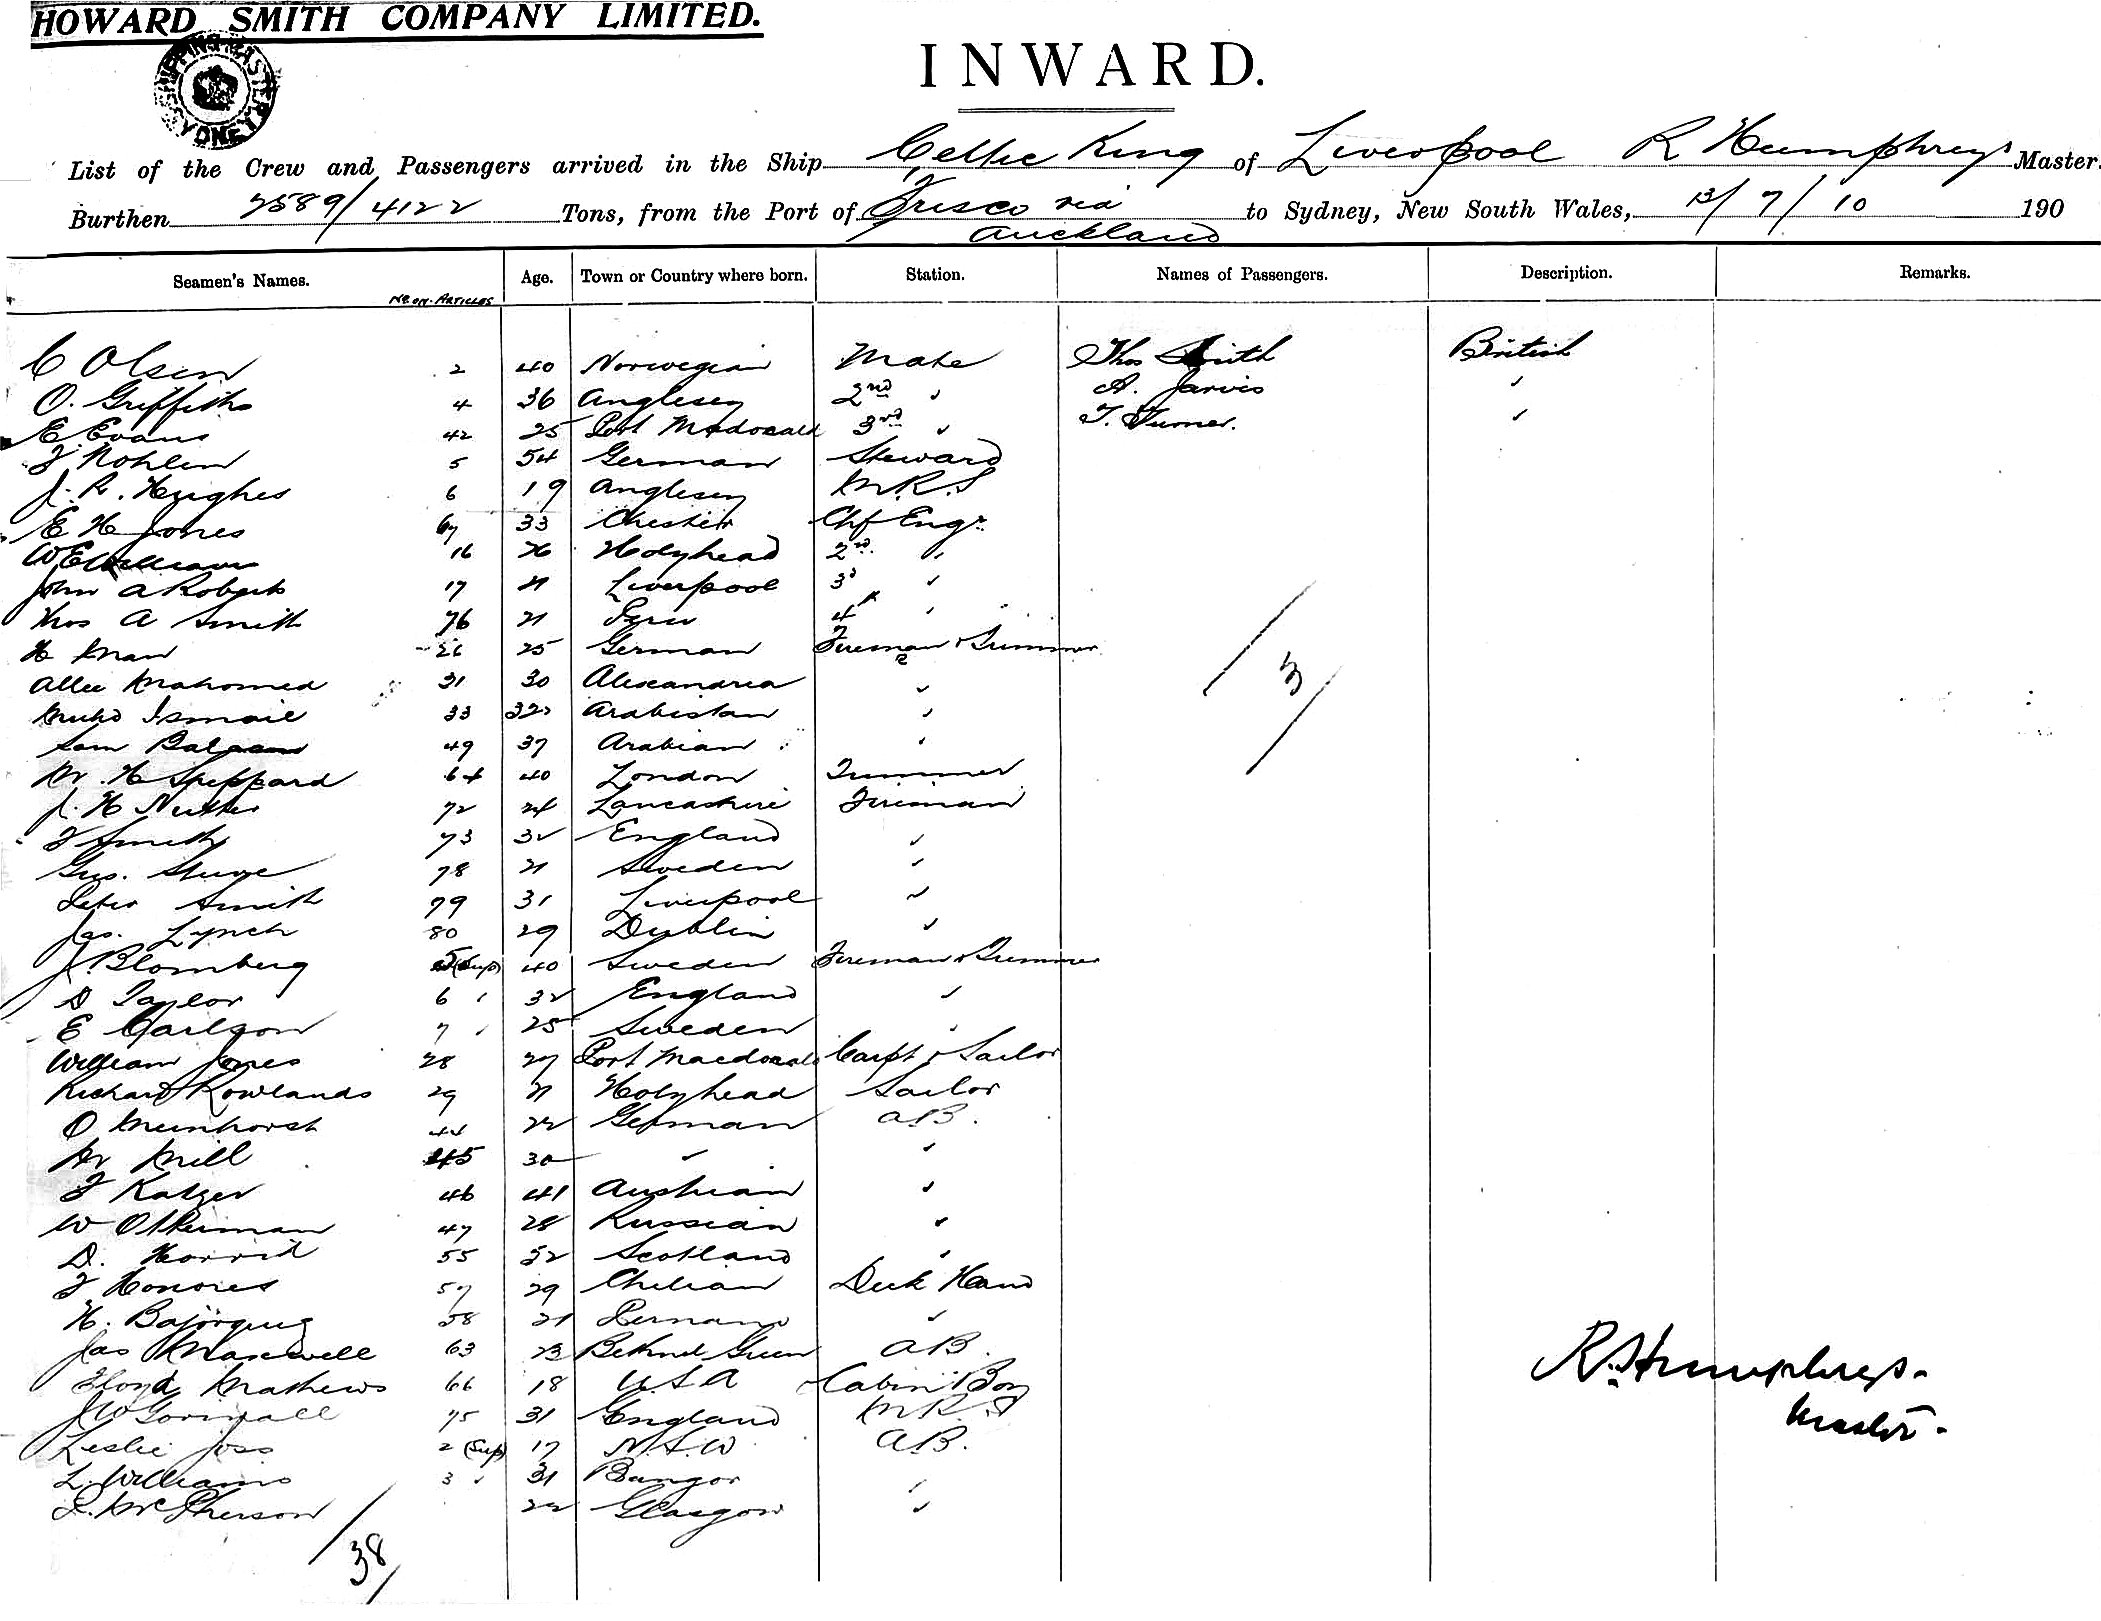 HOWARD SMITH COMPANY LIMITED.
SHIPPING MASTER SYDNEY
INWARD.
List of the Crew and Passengers arrived in the Ship Celtic King of Liverpool R Humphreys Master.
Burthen 2589/4122 Tons, from the Port of Frisco via Auckland to Sydney, New South Wales, 13/7/10 190
Seamen's Names. No on Articles Age. Town or Country where born. Station. Names of Passengers. Description. Remarks.
C Olsen 2 40 Norwegian Mate Thos Smith British
O. Griffiths 4 36 Anglesey 2nd " A. Jarvis "
E Evans 42 25 Port Madocald 3rd " T. Turner. "
5 54 German Steward
J. R. Hughes 6 19 Anglesey M.R.S
E H Jones 67 33 Chester Chf Engr.
W E Williams 16 26 Holyhead 2nd "
John A Roberts 17 21 Liverpool 3d "
Thos A Smith 76 21 Peru 4th "
H Man 26 25 German Fireman & Trimmer
Allee Mahomed 31 30 Alexandria "
Muhd Ismail 33 32 Arabistan "
Sam 49 37 Arabian "
H Sheppard 64 40 London Trimmer
J. H Nutter 72 24 Lancashire Fireman
J Smith 73 32 England "
Gus. 78 21 Sweden "
Peter Smith 79 31 Liverpool "
Jas. Lynch 80 29 Dublin "
J. Blomberg 5 (Sup) 40 Sweden Fireman & Trimmer
D Taylor 6 " 32 England "
E Carlson 7 " 25 Sweden "
William Jones 28 27 Port Macdocald Carpt & Sailor
Richard Rowlands 29 21 Holyhead Sailor
O Meinhorst 44 22 German A.B.
Mill 45 30 " "
J Katzer 46 41 Austrian "
W Osterman 47 28 Russian "
D. 55 52 Scotland "
J Honores 57 29 Chilian Deck Hand
H. 58 21 "
Jas Maxwell 63 23 Bethnal Green A.B.
Floyd Mathews 66 18 U.S.A Cabin Boy
J W Gorwall 75 31 England M.R.S
Leslie Joss 2 (Sup) 17 N.S.W A.B.
L. Williams 3 " 31 Bangor "
McPherson 22 Glasgow "
3
38
R. Humphreys.
Master.